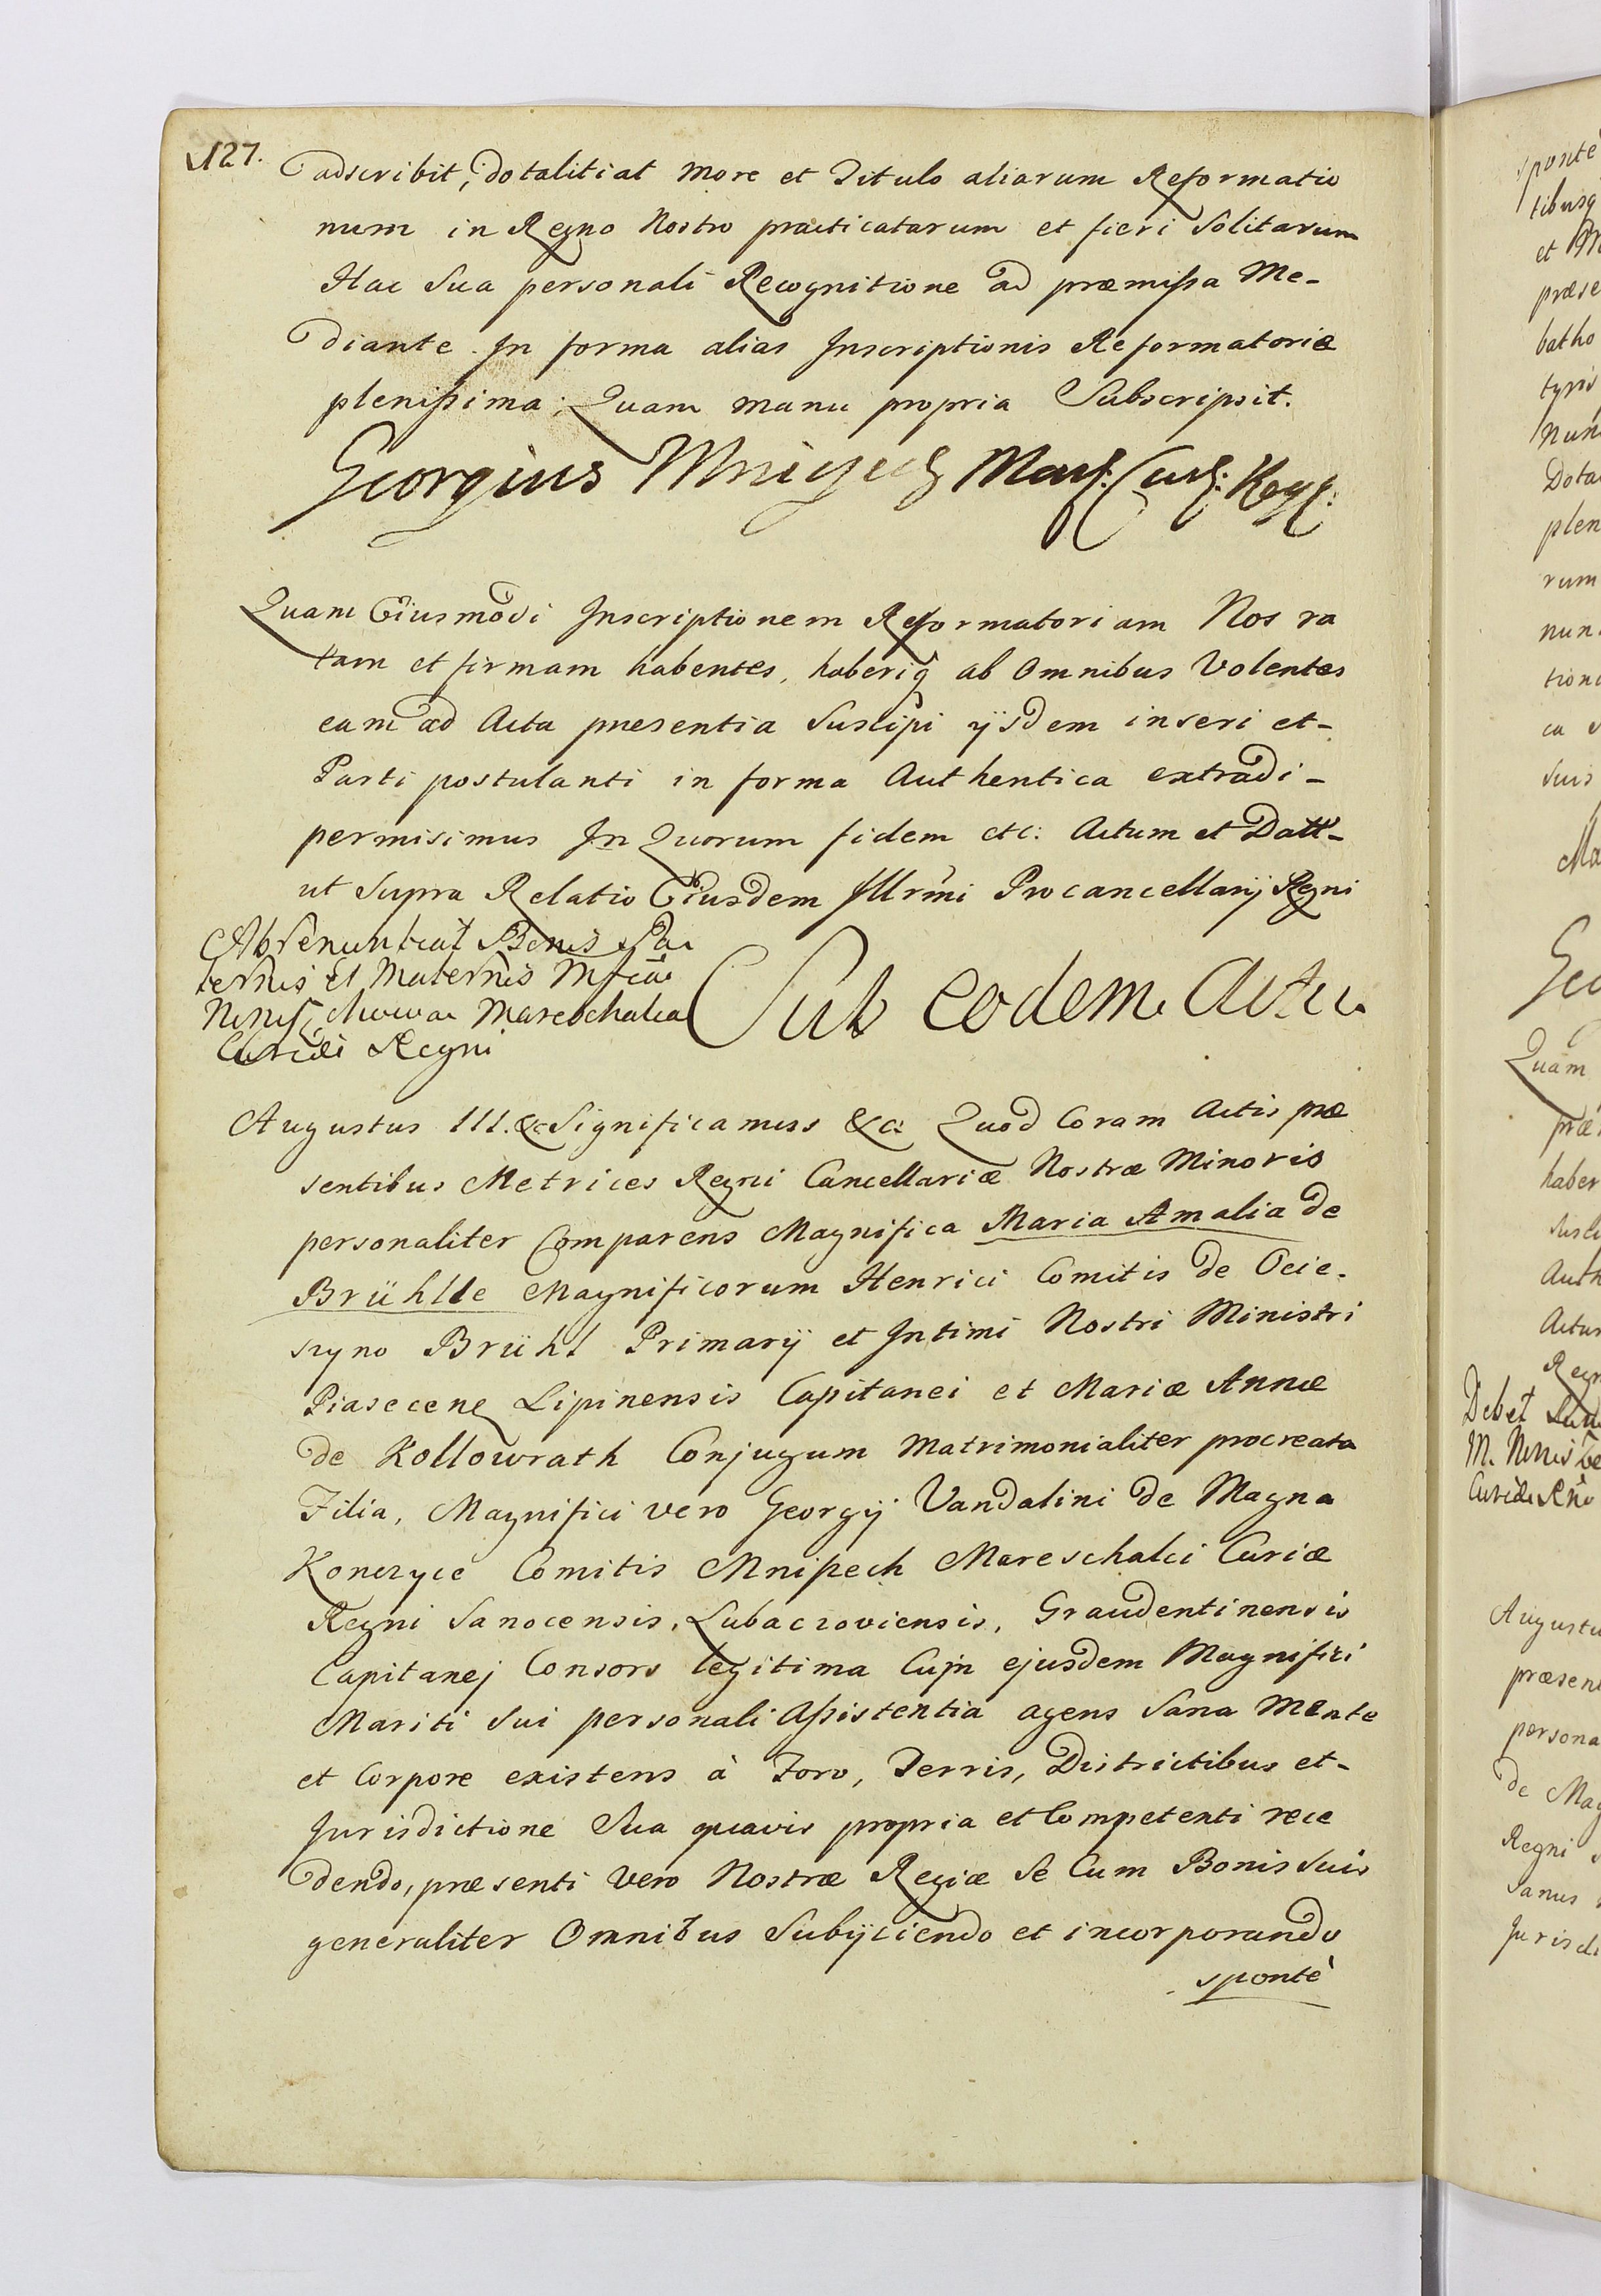 127.
adscribit, dotalitiat More et Titulo aliarum Reformatio
num in Regno Nostro practicatarum et fieri Solitarum
Hac Sua personali Recognitione ad præmissa Me-
diante. In forma alias Inscriptionis Reformatoriæ
plenissima. Quam manu propria Subscripsit.
Georgius Mniszech Mar: Cur: Reg:
Quam Eiusmodi Inscriptionem Reformatoriam Nos ra
tam et firmam habentes, haberiq ab Omnibus Volentes
eam ad Acta præsentia Suscipi ijsdem inseri et-
Parti postulanti in forma Authentica extradi-
permisimus In Quorum fidem etc: Actum et Datt-
ut Supra Relatio Eiusdem Illrmi Procancellarij Regni
Abrenuntiat Bonis Pa
ternis Et Maternis Mfica
Mareschalca
Curiæ Regni
Sub eodem Actu
Augustus III. &c Significamus &c: Quod Coram Actis præ
sentibus Metrices Regni Cancellariæ Nostræ Minoris
personaliter Comparens Magnifica Maria Amalia de
Brühlle Magnificorum Henrici Comitis de Ocie-
szyno Brühl Primarij et Intimi Nostri Ministri
Piasecen Lipinensis Capitanei et Mariæ Annæ
de Kollowrath Conjugum Matrimonialiter procreata
Filia, Magnifici vero Georgij Vandalini de Magna
Konczyce Comitis Mniszech Mareschalci Curiæ
Regni Sanocensis, Lubaczoviensis, Graudentinensis
Capitanej Consors legitima Cujn ejusdem Magnifici
Mariti Sui personali Assistentia agens Sana Mente
et Corpore existens à Foro, Terris, Districtibus et-
Jurisdictione Sua quavis propria et Competenti rece
dendo, præsenti vero Nostræ Regiæ Se Cum Bonis Suis
generaliter Omnibus Subijciendo et incorporando
sponte
sponte
tibusq
et
præse
batho
tyris
Nun
Dota
plen
rum
nun
tion
ca
Suis
Ma
Geo
Quam
præ
haber
Susci
Auth
Actu
Regn
Debet
M.
Curiæ
Augustu
præsen
persona
de Mag
Regni
Sanus
Jurisdi